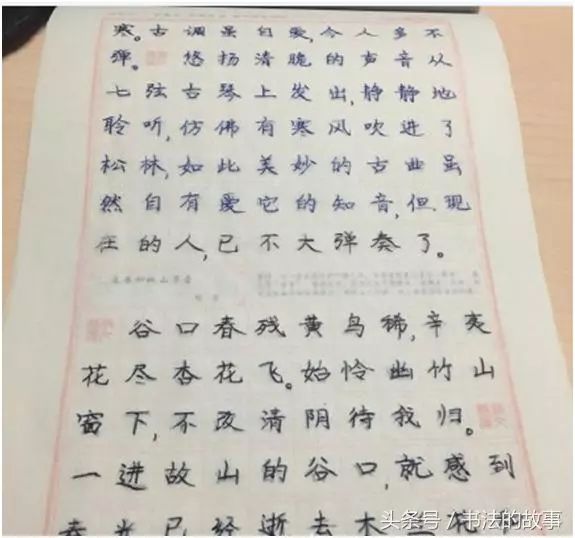 寒。古调虽自爱,今人多不
弹。 悠扬清脆的声音从
七弦古琴上发出,静静地
聆听,仿佛有寒风吹进了
松林,如此美妙的古曲虽
然自有爱它的知音,但现
在的人,已不大弹奏了。
谷口春残黄鸟稀,辛夷
花尽杏花飞。始怜幽竹山
窗下,不改清阴待我归。
一进故山的谷口,就感到
春光已经逝去木
头条号 / 书法的故事